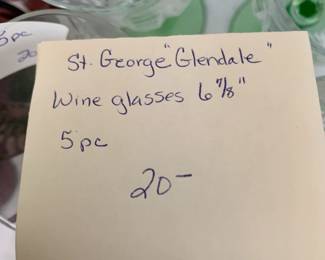 5pc
20
St. George "Glendale"
Wine glasses 6 7/8"
5pc
20-